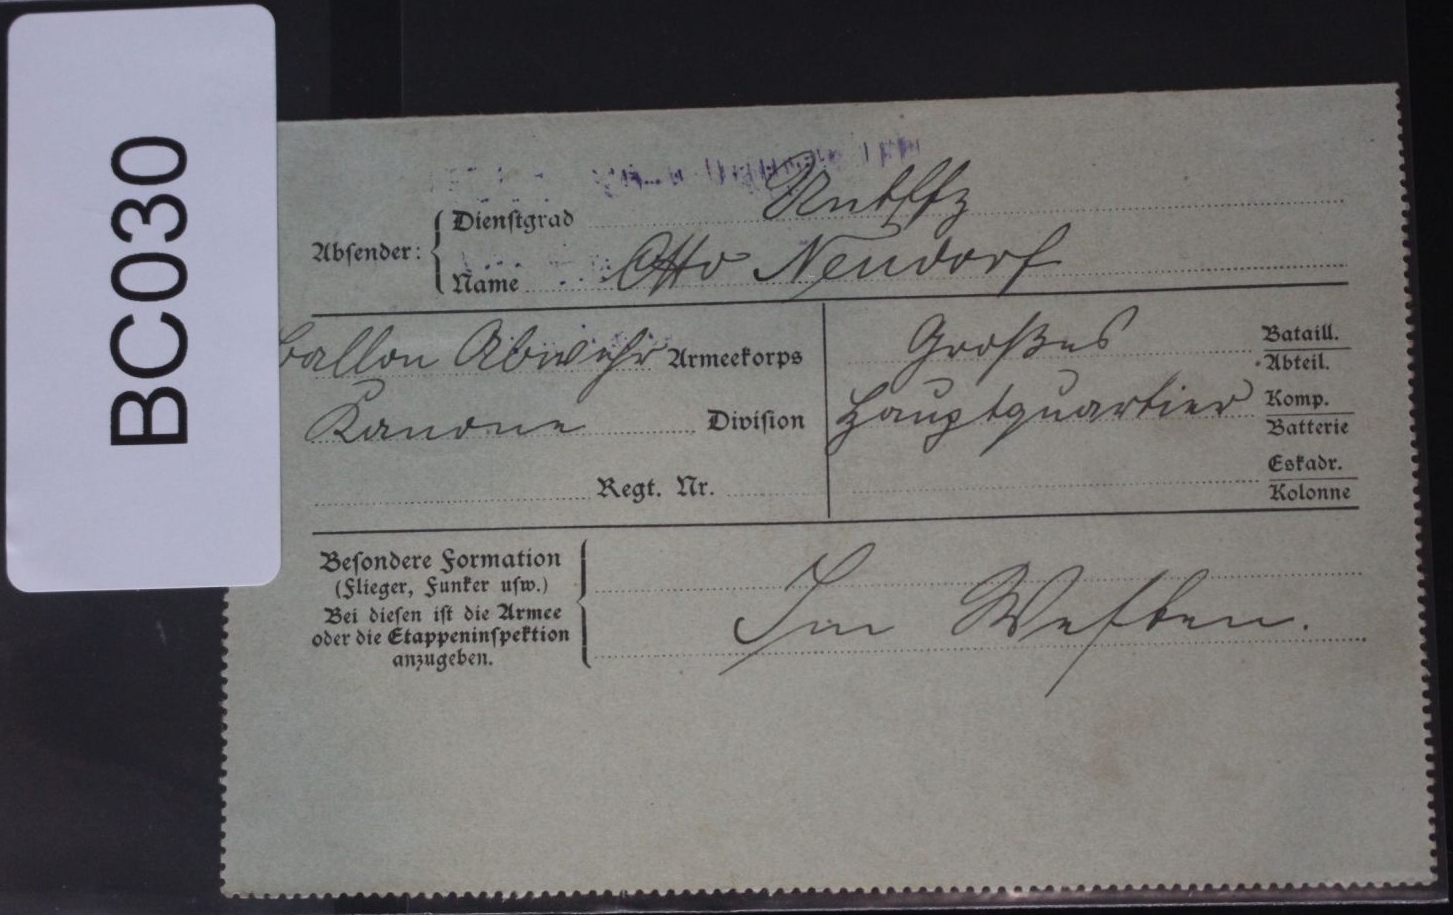 BC030
Absender:
Dienstgrad Untffz
Name Otto Neudorf
Ballon Abwehr Armeekorps
Kanone Division
Regt. Nr.
Großes Bataill.
Abteil.
Hauptquartier Komp.
Batterie
Eskadr.
Kolonne
Besondere Formation
(Flieger, Funker usw.)
Bei diesen ist die Armee
oder die Etappeninspektion
anzugeben.
Im Westen.